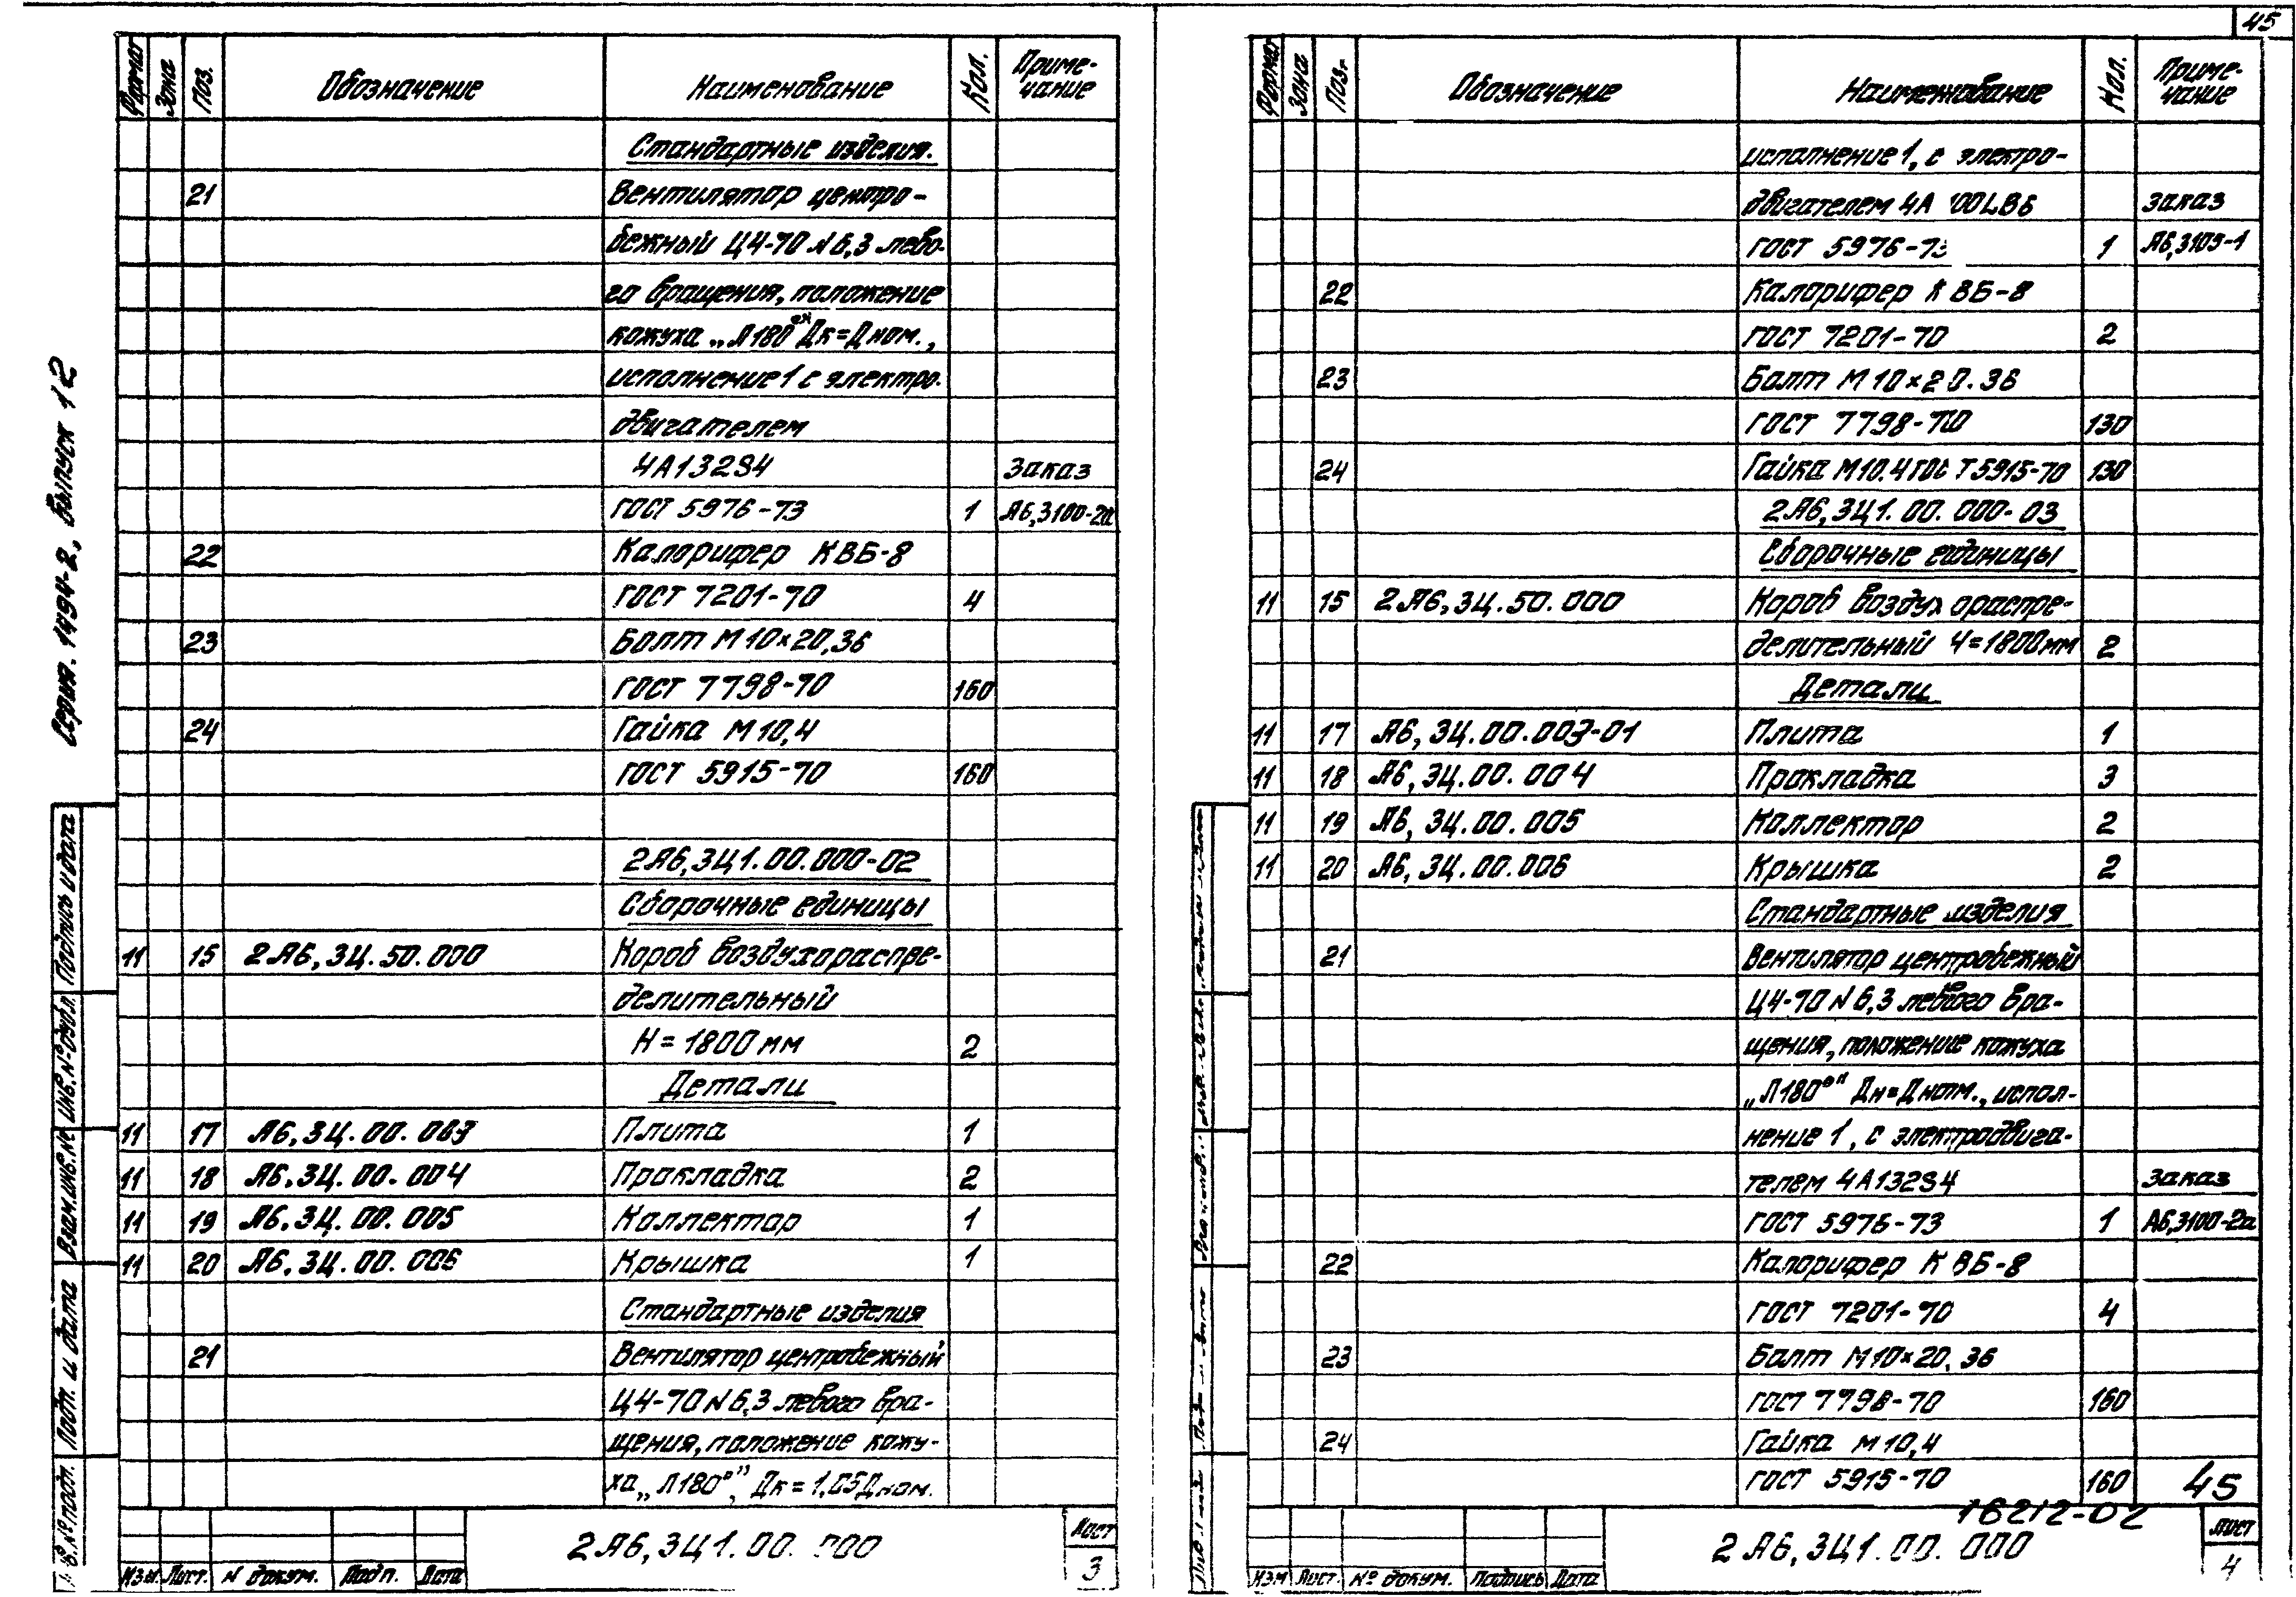 45
Серия. 1494-2, Выпуск 12
Формат Зона Поз. Обозначение Наименование Кол. Приме-
чание
Стандартные изделия.
21 Вентилятор центро-
бежный Ц4-70 N 6,3 лево-
го вращения, положение
кожуха „Л180°" Дк=Дном.,
исполнение 1 с электро-
двигателем
4А132S4 Заказ
ГОСТ 5976-73 1 А6,3100-2а
22 Калорифер КВБ-8
ГОСТ 7201-70 4
23 Болт М10×20,36
ГОСТ 7798-70 160
24 Гайка М10,4
ГОСТ 5915-70 160
2А6,3Ц1.00.000-02
Сборочные единицы
11 15 2А6,3Ц.50.000 Короб воздухораспре-
делительный
Н = 1800 мм 2
Детали
11 17 А6,3Ц.00.003 Плита 1
11 18 А6,3Ц.00.004 Прокладка 2
11 19 А6,3Ц.00.005 Коллектор 1
11 20 А6,3Ц.00.006 Крышка 1
Стандартные изделия
21 Вентилятор центробежный
Ц4-70 N 6,3 левого вра-
щения, положение кожу-
ха „Л180°", Дк = 1,05Дном.
Подпись и дата
Инв. № дубл.
Взам. инв. №
Подп. и дата
№ подл.
2А6,3Ц1.00.000
Лист
3
Изм. Лист. N докум. Подп. Дата
Формат Зона Поз. Обозначение Наименование Кол. Приме-
чание
исполнение 1, с электро-
двигателем 4А 100LB6 заказ
ГОСТ 5976-73 1 А6,3105-1
22 Калорифер КВБ-8
ГОСТ 7201-70 2
23 Болт М10×20.36
ГОСТ 7798-70 130
24 Гайка М10.4 ГОСТ 5915-70 130
2А6,3Ц1.00.000-03
Сборочные единицы
11 15 2А6,3Ц.50.000 Короб воздухораспре-
делительный Ч=1800мм 2
Детали
11 17 А6,3Ц.00.003-01 Плита 1
11 18 А6,3Ц.00.004 Прокладка 3
11 19 А6,3Ц.00.005 Коллектор 2
11 20 А6,3Ц.00.006 Крышка 2
Стандартные изделия
21 Вентилятор центробежный
Ц4-70 N 6,3 левого вра-
щения, положение кожуха
„Л180°" Дн=Дном., испол-
нение 1, с электродвига-
телем 4А132S4 Заказ
ГОСТ 5976-73 1 А6,3100-2а
22 Калорифер КВБ-8
ГОСТ 7201-70 4
23 Болт М10×20,36
ГОСТ 7798-70 160
24 Гайка М10,4
ГОСТ 5915-70 160
45
16212-02
2А6,3Ц1.00.000
Лист
4
Изм Лист. № докум. Подпись Дата